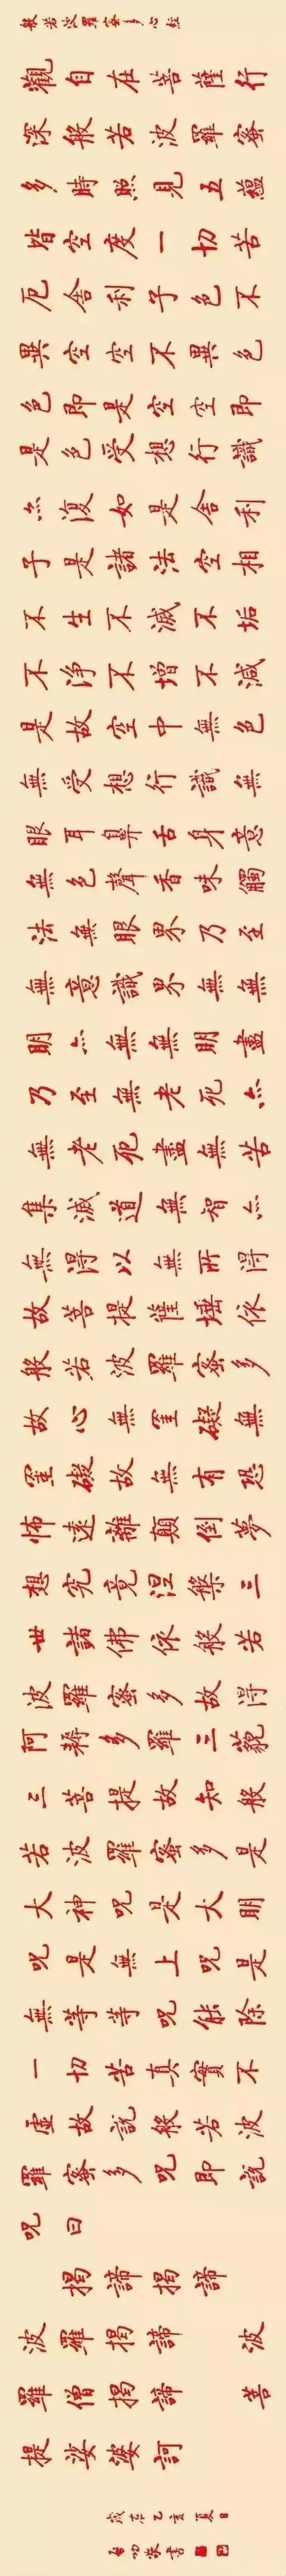 般若波羅蜜多心經
觀自在菩薩行
深般若波羅蜜
多時照見五蘊
皆空度一切苦
厄舍利子色不
異空空不異色
色即是空空即
是色受想行識
亦復如是舍利
子是諸法空相
不生不滅不垢
不淨不增不減
是故空中無色
無受想行識無
眼耳鼻舌身意
無色聲香味觸
法無眼界乃至
無意識界無無
明亦無無明盡
乃至無老死亦
無老死盡無苦
集滅道無智亦
無得以無所得
故菩提薩埵依
般若波羅蜜多
故心無罣礙無
罣礙故無有恐
怖遠離顛倒夢
想究竟涅槃三
世諸佛依般若
波羅蜜多故得
阿耨多羅三藐
三菩提故知般
若波羅蜜多是
大神呪是大明
呪是無上呪是
無等等呪能除
一切苦真實不
虛故說般若波
羅蜜多呪即說
呪曰
揭諦揭諦
波羅揭諦 波
羅僧揭諦 菩
提娑婆訶
歲在乙亥夏日
啓功敬書